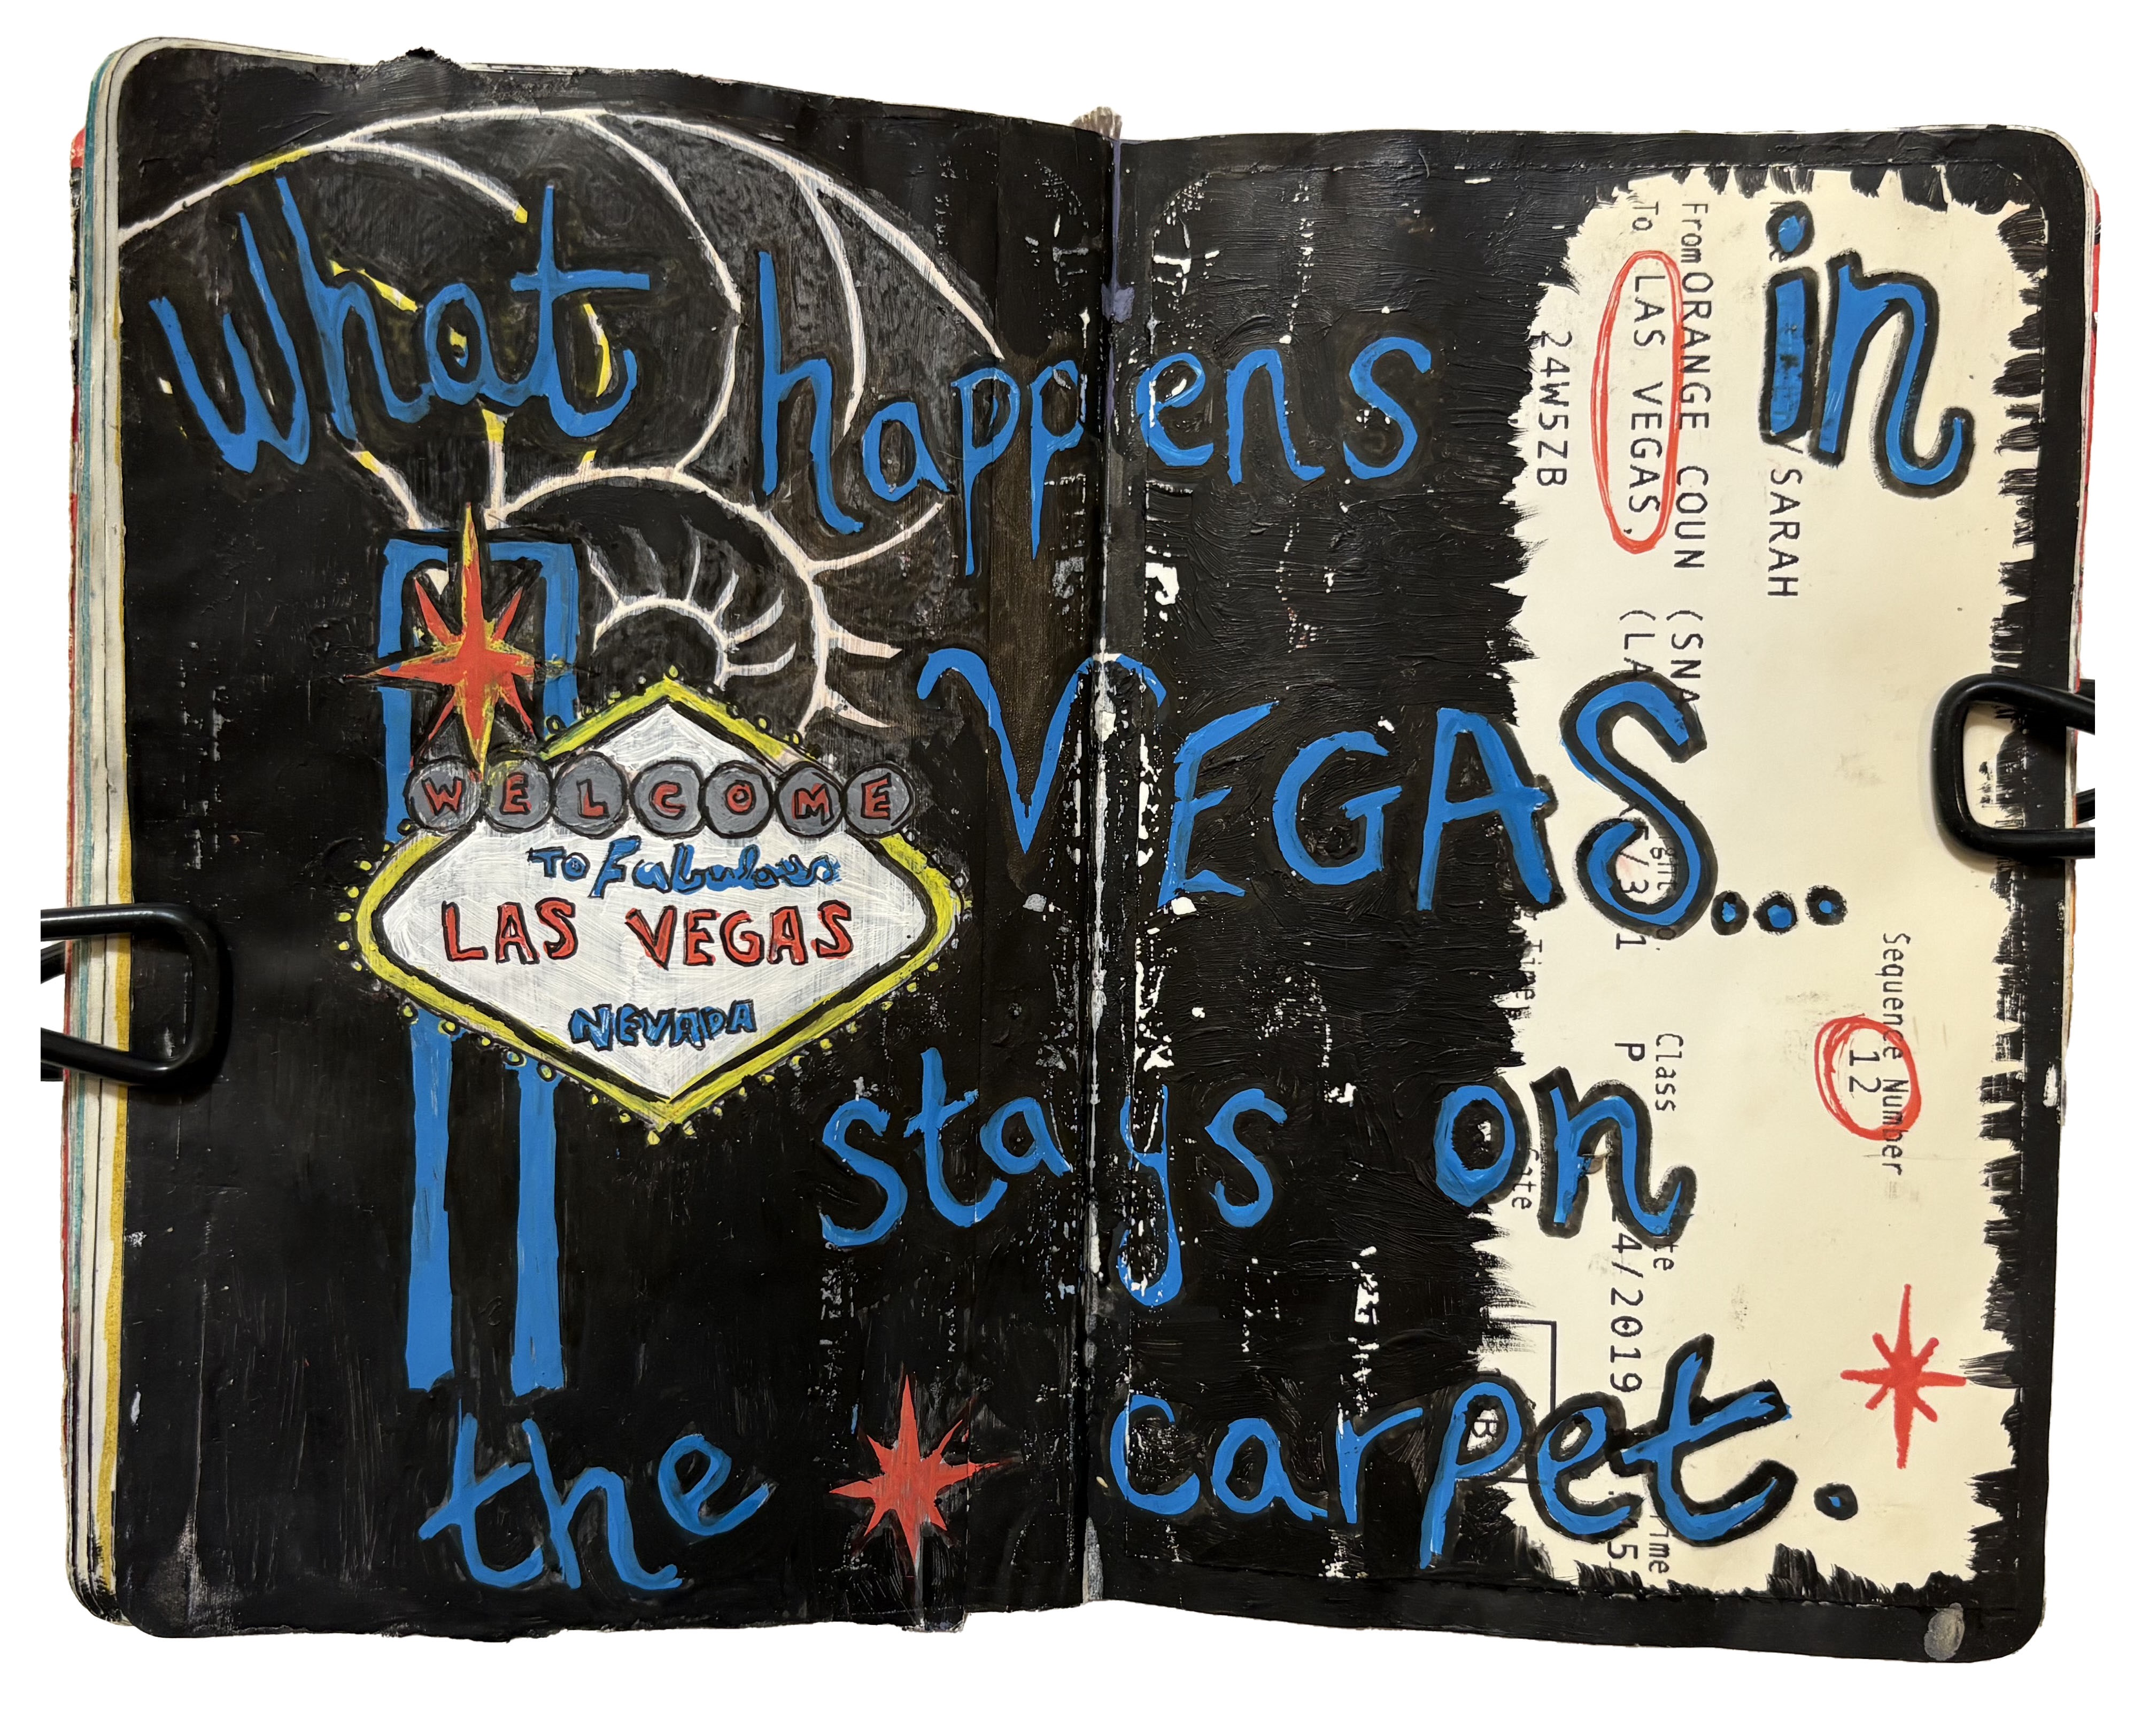 What happens in
VEGAS...
stays on
the carpet.
WELCOME
TO Fabulous
LAS VEGAS
NEVADA
/SARAH
From ORANGE COUN (SNA
To LAS VEGAS, (LA
24W5ZB
Sequence Number
12
Class
P
4/2019
B